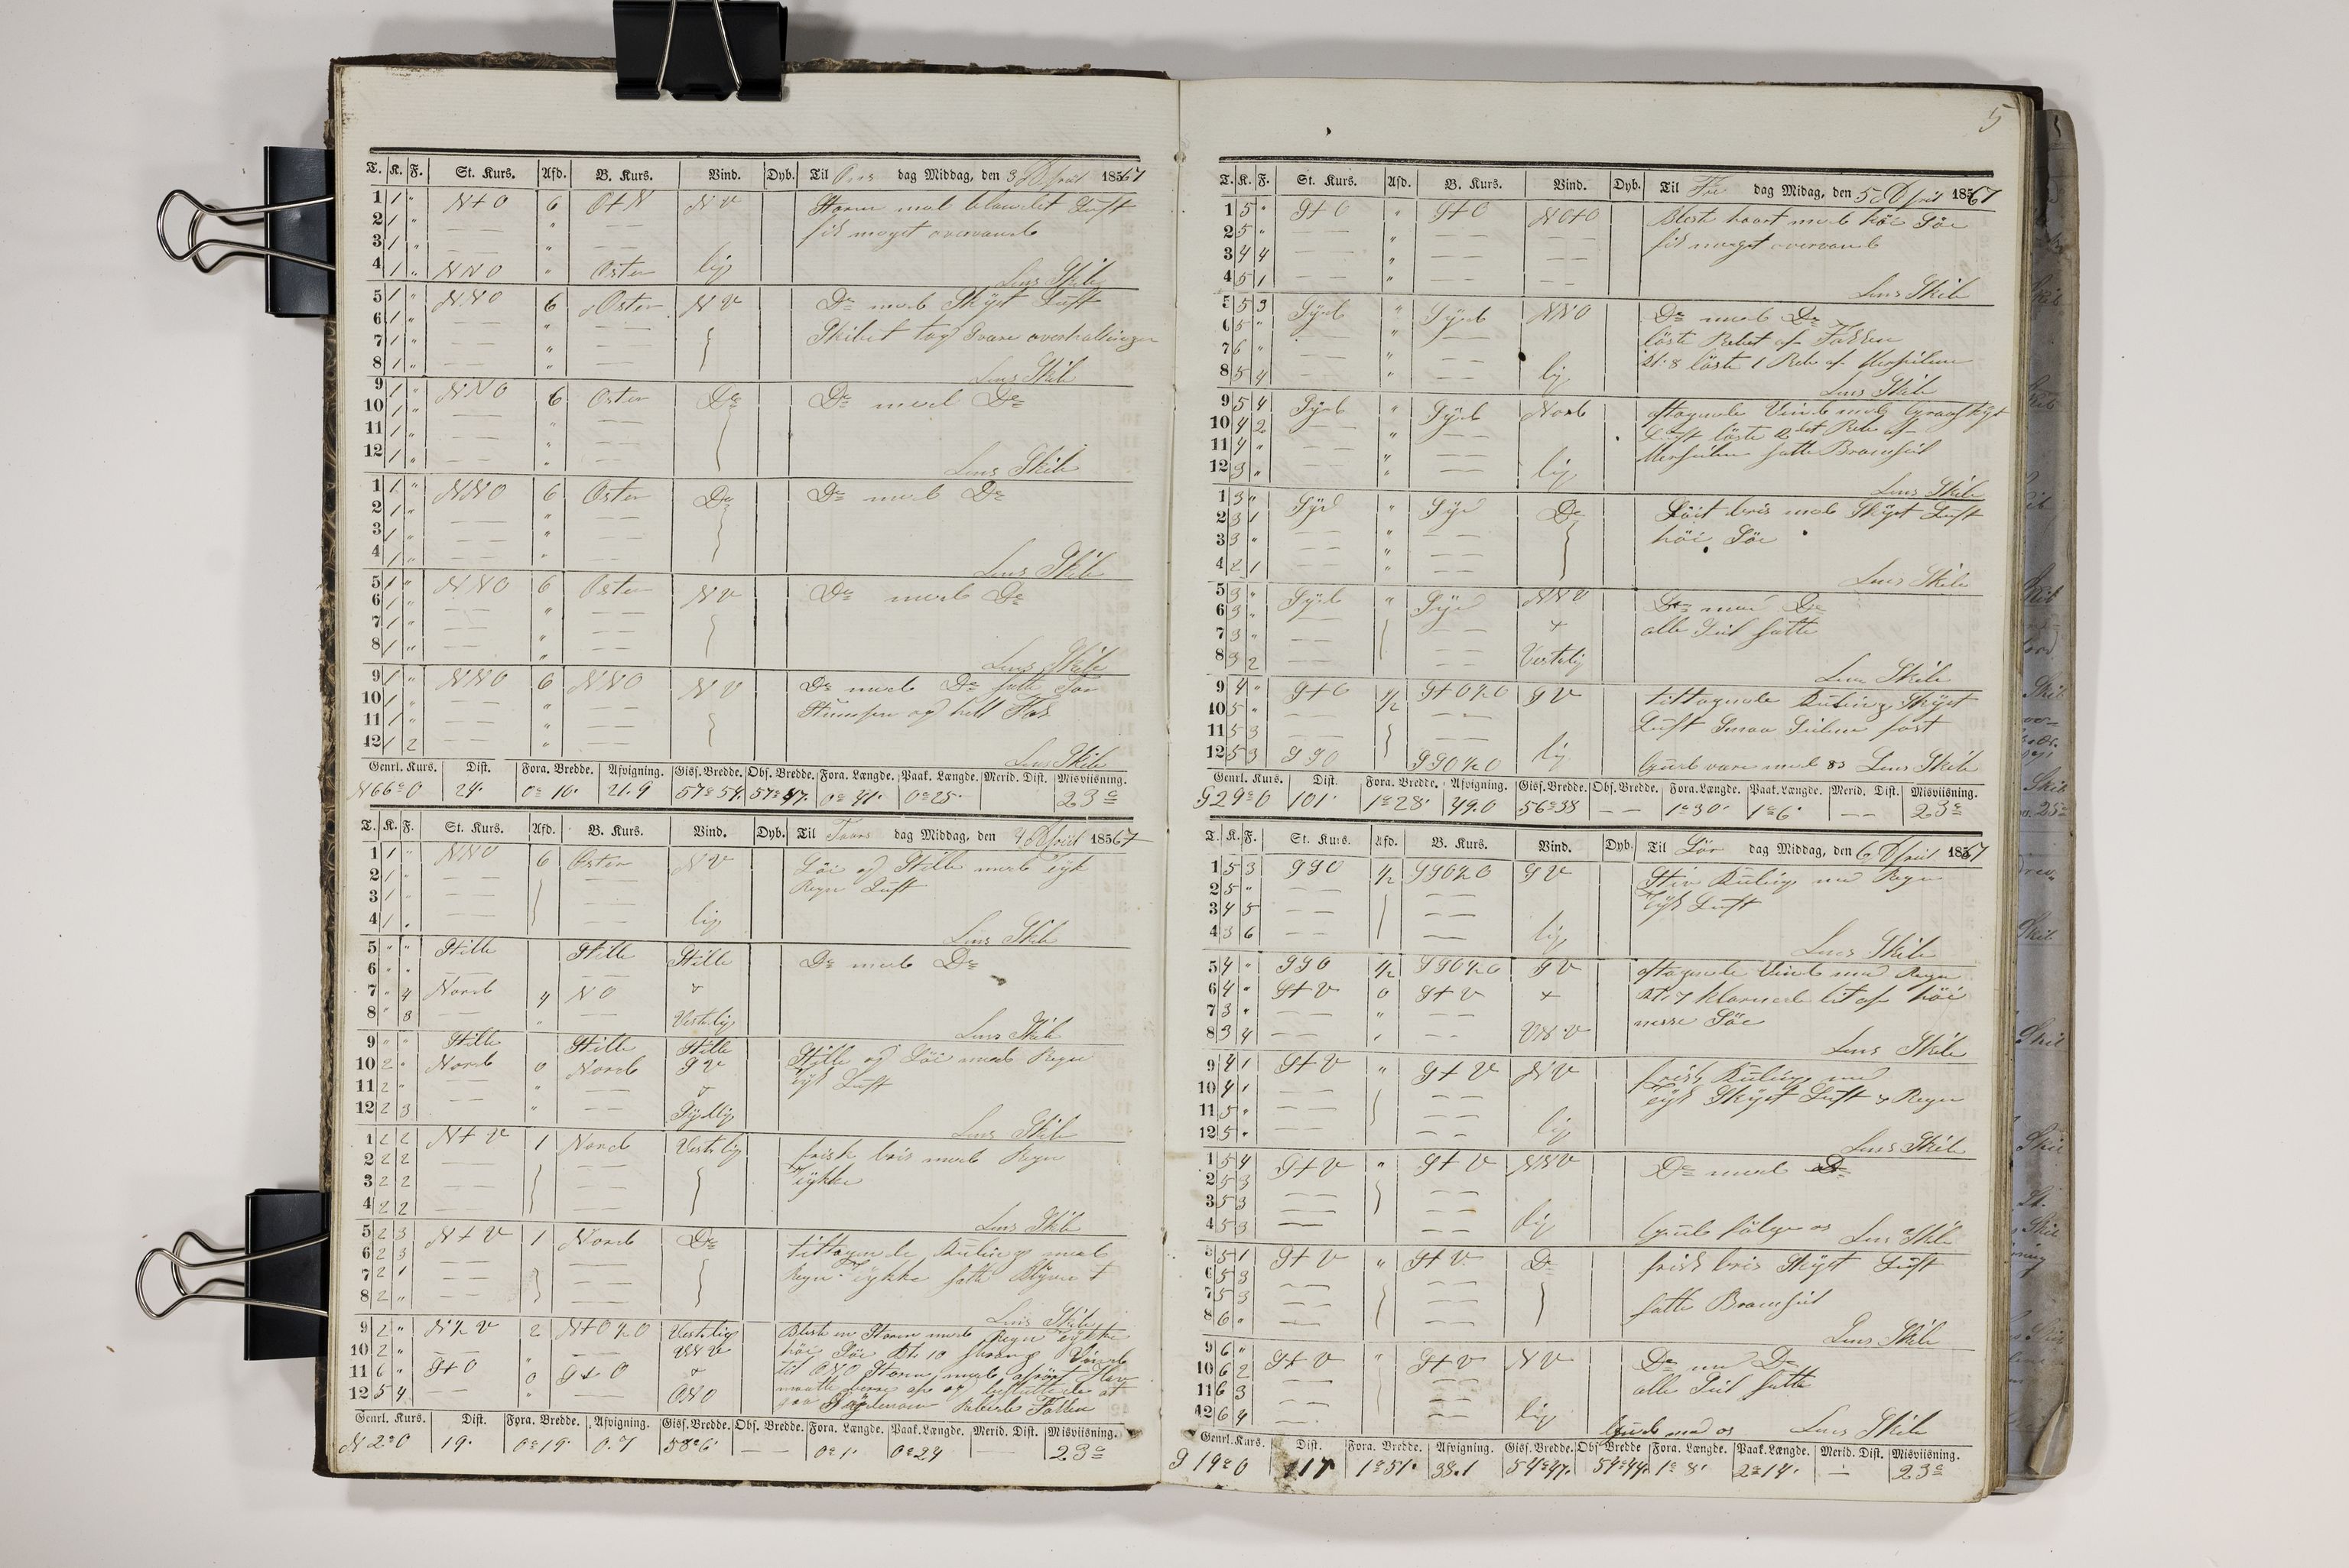 5
T. K. F. St. Kurs. Afd. B. Kurs. Vind. Dyb. Til Ons dag Middag, den 3 April 1867
1 1 " N+O 6 O+N NV Storm med blandet Luft
2 1 " — — " — — fik meget overvand
3 1 " — — " — —
4 1 " NNO " Osten lig Lens Skib
5 1 " NNO 6 Osten NV Do med Skyet Luft
6 1 " — — " — — Skibet tog svare overhalinger
7 1 " — — " — —
8 1 " — — " — — Lens Skib
9 1 " NNO 6 Osten Do Do med Do
10 1 " — — " — —
11 1 " — — " — —
12 1 " — — " — — Lens Skib
1 1 " NNO 6 Osten Do Do med Do
2 1 " — — " — —
3 1 " — — " — —
4 1 " — — " — — Lens Skib
5 1 " NNO 6 Osten NV Do med Do
6 1 " — — " — —
7 1 " — — " — —
8 1 " — — " — — Lens Skib
9 1 " NNO 6 NNO NV Do med Do satte For
10 1 " — — " — — Stumpen og
11 1 " — — " — —
12 1 2 — — " — — Lens Skib
Genrl. Kurs. Dist. Fora. Bredde. Afvigning. Gisf. Bredde. Obf. Bredde. Fora. Længde. Paak. Længde. Merid. Dist. Misviisning.
N66°O 24. 0°10. 21.9 57°54. 57°47. 0°41. 0°25. 23°
T. K. F. St. Kurs. Afd. B. Kurs. Vind. Dyb. Til Tors dag Middag, den 4 April 1867
1 1 " NNO 6 Osten NV Löi og Stille med Tyk
2 1 " — — — — Regn Luft
3 1 " — — — —
4 1 " — — — — lig Lens Skib
5 " " Stille Stille Stille Do med Do
6 " " — — — —
7 " 4 Nord 4 NO
8 " 3 — — " — — Vestlig Lens Skib
9 " " Stille Stille Stille Stille og Löi med Regn
10 2 " Nord 0 Nord SV Tyk Luft
11 2 " — — " — —
12 2 3 — — " — — Sydlig Lens Skib
1 2 2 N+V 1 Nord Vestlig frisk bris med Regn
2 2 2 — — — — Tykke
3 2 2 — — — —
4 2 2 — — — — Lens Skib
5 2 3 N+V 1 Nord Do tiltagende Kuling med
6 2 3 — — — — Regn Tykke satte
7 2 1 — — — —
8 2 " — — — — Lens Skib
9 2 " N½V 2 N+O½O Vestlig Blest en Storm med Regn Tykke
10 2 " — — " — — VNV höi Söe Kl. 10 sprang Vinde
11 6 " S+O 0 S+O til ONO Storm med
12 5 4 — — " — — ONO
Fokken
Genrl. Kurs. Dist. Fora. Bredde. Afvigning. Gisf. Bredde. Obf. Bredde. Fora. Længde. Paak. Længde. Merid. Dist. Misviisning.
N2°O 19. 0°19. 0.7 58°6. — — 0°1. 0°24 — 23°
T. K. F. St. Kurs. Afd. B. Kurs. Vind. Dyb. Til Fre dag Midag, den 5 April 1867
1 5 " S+O " S+O NO+O Blest haart med höi Söe
2 5 " — — " — — — — fik meget overvand
3 4 4 — — " — — — —
4 5 1 — — " — — — — Lens Skib
5 5 3 Syd " Syd NNO Do med Do
6 5 " — — " — — löste Rebet af Fokken
7 6 " — — " — — Kl: 8 löste 1 Reb af Mersseilene
8 5 4 — — " — — lig Lens Skib
9 5 4 Syd " Syd Nord aftagende Vind med Graaskyet
10 4 2 — — " — — Luft löste 2det Reb af
11 4 " — — " — — Mersseilene satte Bramseil
12 3 " — — " — — lig Lens Skib
1 3 " Syd " Syd Do Löit bris med Skyet Luft
2 3 1 — — " — — höi Söe
3 3 " — — " — —
4 2 1 — — " — — Lens Skib
5 3 " Syd " Syd NNV Do med Do
6 3 " — — — — + alle Seil satte
7 3 " — — — —
8 3 2 — — — — Vestlig Lens Skib
9 4 " S+O ½ S+O½O SV tiltagende Kuling Skyet
10 5 " — — — — Luft Smaa Seilene fast
11 5 3 — — — —
12 5 3 SSO SSO½O lig Gud vare med os Lens Skib
Genrl. Kurs. Dist. Fora. Bredde. Afvigning. Gisf. Bredde. Obf. Bredde. Fora. Længde. Paak. Længde. Merid. Dist. Misviisning.
S29°O 101. 1°28. 49.0 56°38 — — 1°30. 1°6. — — 23°
T. K. F. St. Kurs. Afd. B. Kurs. Vind. Dyb. Til Lör dag Middag, den 6 April 1867
1 5 3 SSO ½ SSO½O SV Stiv Kuling med Regn
2 5 " — — — — Tyk Luft
3 4 5 — — — —
4 3 6 — — — — lig Lens Skib
5 4 " SSO ½ SSO½O SV aftagende Vind med Regn
6 4 " S+V 0 S+V + Kl. 7 klarnede lit af höi
7 3 " — — " — — Söe
8 3 4 — — " — — VNV Lens Skib
9 4 1 S+V " S+V NV frisk Kuling med
10 4 1 — — — — Tyk Skyet Luft & Regn
11 5 " — — — —
12 5 " — — — — lig Lens Skib
1 5 4 S+V " S+V NNV Do med Do
2 5 3 — — — —
3 5 3 — — — —
4 5 3 — — — — lig Gud fölge os Lens Skib
5 5 1 S+V " S+V Do frisk bris Skyet Luft
6 5 3 — — — —
7 5 3 — — — — satte Bramseil
8 6 " — — — — Lens Skib
9 6 " S+V " S+V NV Do med Do
10 6 2 — — — — alle Seil satte
11 6 3 — — — —
12 6 4 — — — — lig Gud med os Lens Skib
Genrl. Kurs. Dist. Fora. Bredde. Afvigning. Gisf. Bredde. Obf Bredde Fora. Længde. Paak. Længde. Merid. Dist. Misviisning.
S19°O 117 1°51. 38.1 54°47. 54°44. 1°8. 2°14. — 23°